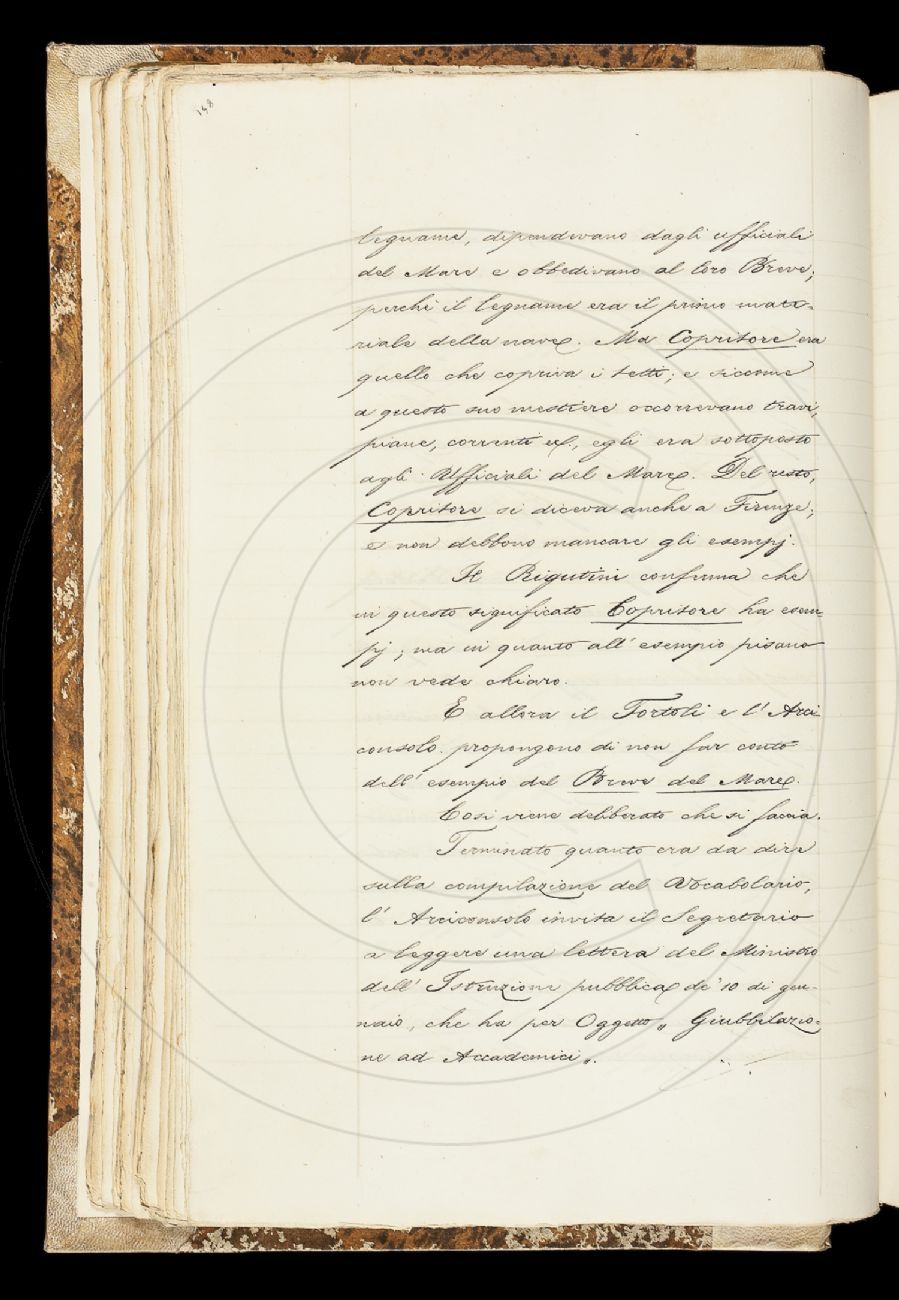 148
legname, dipendevano dagli ufficiali
del Mare e obbedivano al loro Breve;
perchè il legname era il primo mate-
riale della nave. Ma Copritore era
quello che copriva i tetti; e siccome
a questo suo mestiere occorrevano travi,
piane, correnti ec, egli era sottoposto
agli Ufficiali del Mare. Del resto,
Copritore si diceva anche a Firenze;
e non debbono mancare gli esempj.
Il Rigutini conferma che
in questo significato Copritore ha esem-
pj; ma in quanto all' esempio pisano
non vede chiaro.
E allora il Tortoli e l' Arci
consolo propongono di non far conto
dell' esempio del Breve del Mare.
Così viene deliberato che si faccia.
Terminato quanto era da dire
sulla compilazione del Vocabolario,
l' Arciconsolo invita il Segretario
a leggere una lettera del Ministro
dell' Istruzione pubblica de' 10 di gen-
naio, che ha per Oggetto „ Giubbilazio-
ne ad Accademici „.